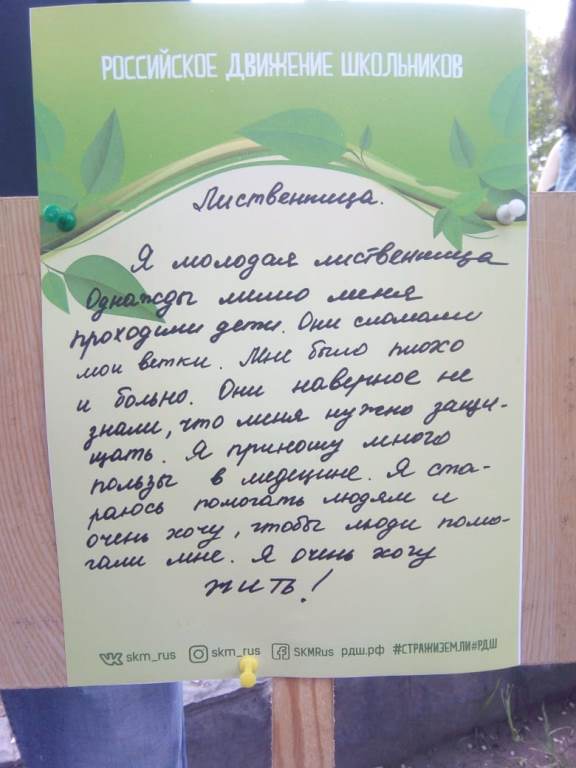 РОССИЙСКОЕ ДВИЖЕНИЕ ШКОЛЬНИКОВ
Лиственница.
Я молодая лиственница
Однажды мимо меня
проходили дети. Они сломали
мои ветки. Мне было плохо
и больно. Они наверное не
знали, что меня нужно защи-
щать. Я приношу много
пользы в медецине. Я ста-
раюсь помогать людям и
очень хочу, чтобы люди помо-
гали мне. Я очень хочу
жить!
skm_rus skm_rus SKMRus рдш.рф #СТРАЖИЗЕМЛИ#РДШ